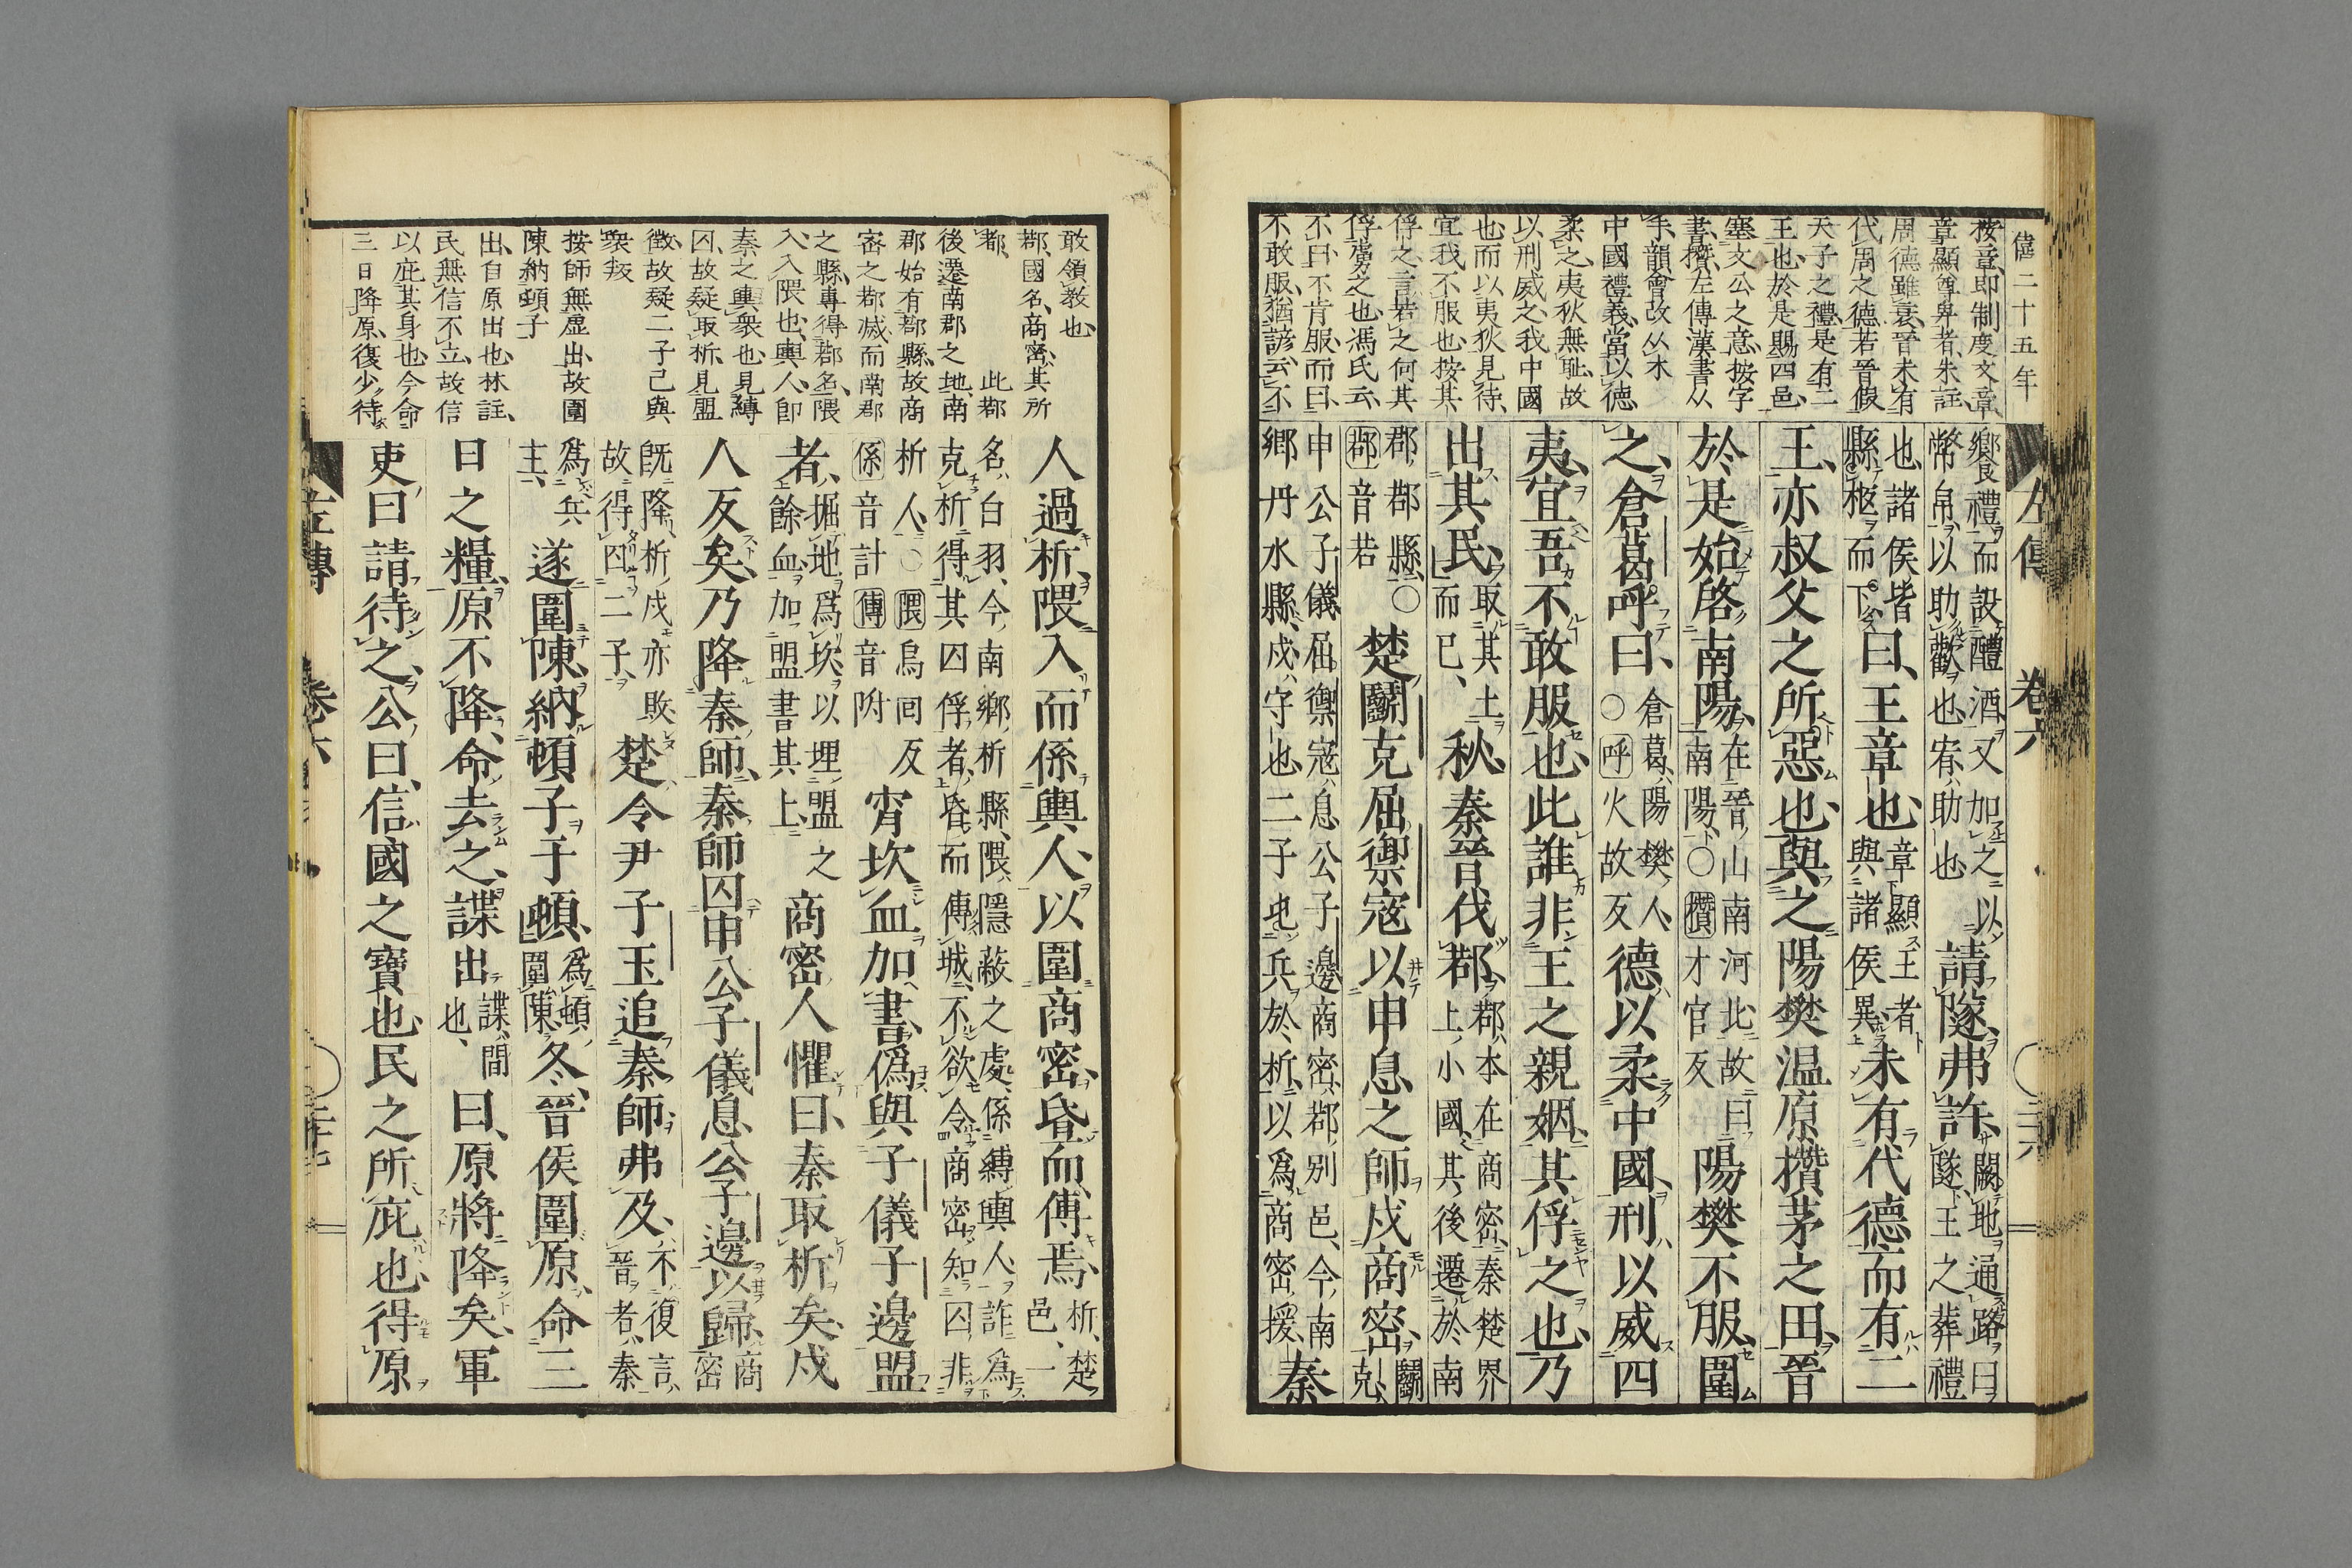 僖二十五年
左傳 卷六 三十六
按章即制度文章
章顯尊卑者朱註
周德雖衰晉未有
代周之德若晉假
天子之禮是有二
王也於是賜四邑
塞文公之意按字
書攢左傳漢書从
手韻會改从木
中國禮義當以德
柔之夷狄無恥故
以刑威之我中國
也而以夷狄見待
宜我不服也按其
俘之言若之何其
俘虜之也馮氏云
不曰不肯服而曰
不敢服猶諺云不
饗禮而設醴酒又加之以幣帛以助歡也宥助也請隧弗許闕地通路曰隧王之葬禮
也諸侯皆縣柩而下曰王章也章顯王者與諸侯異未有代德而有二
王亦叔父之所惡也與之陽樊温原攢茅之田晉
於是始啓南陽在晉山南河北故曰南陽○攢才官反陽樊不服圍
之倉葛呼曰倉葛陽樊人○呼火故反德以柔中國刑以威四
夷宜吾不敢服也此誰非王之親姻其俘之也乃
出其民取其土而已秋秦晉伐鄀鄀本在商密秦楚界上小國其後遷於南
郡鄀縣○鄀音若楚鬭克屈禦寇以申息之師戍商密鬭克
申公子儀屈禦寇息公子邊商密鄀別邑今南鄉丹水縣戍守也二子屯兵於析以爲商密援秦
敢領教也
鄀國名商密其所
都 此鄀
後遷南郡之地南
郡始有鄀縣故商
密之鄀滅而南郡
之縣專得鄀名隈
入入隈也輿人卽
秦之輿衆也見縛
囚故疑取析見盟
徵故疑二子已與
衆叛
按師無虛出故圍
陳納頓子
出自原出也林註
民無信不立故信
以庇其身也今命
三日降原復少待
人過析隈入而係輿人以圍商密昏而傅焉析楚邑一
名白羽今南鄉析縣隈隱蔽之處係縛輿人詐爲克析得其囚俘者昏而傅城不欲令商密知囚非
析人○隈烏回反係音計傅音附宵坎血加書僞與子儀子邊盟
者掘地爲坎以埋盟之餘血加盟書其上商密人懼曰秦取析矣戍
人反矣乃降秦師秦師囚申公子儀息公子邊以歸商密
旣降析戍亦敗故得囚二子楚令尹子玉追秦師弗及不復言晉者秦
爲兵主遂圍陳納頓子于頓爲頓圍陳冬晉侯圍原命三
日之糧原不降命去之諜出諜間也曰原將降矣軍
吏曰請待之公曰信國之寶也民之所庇也得原
左傳 卷六 三十七